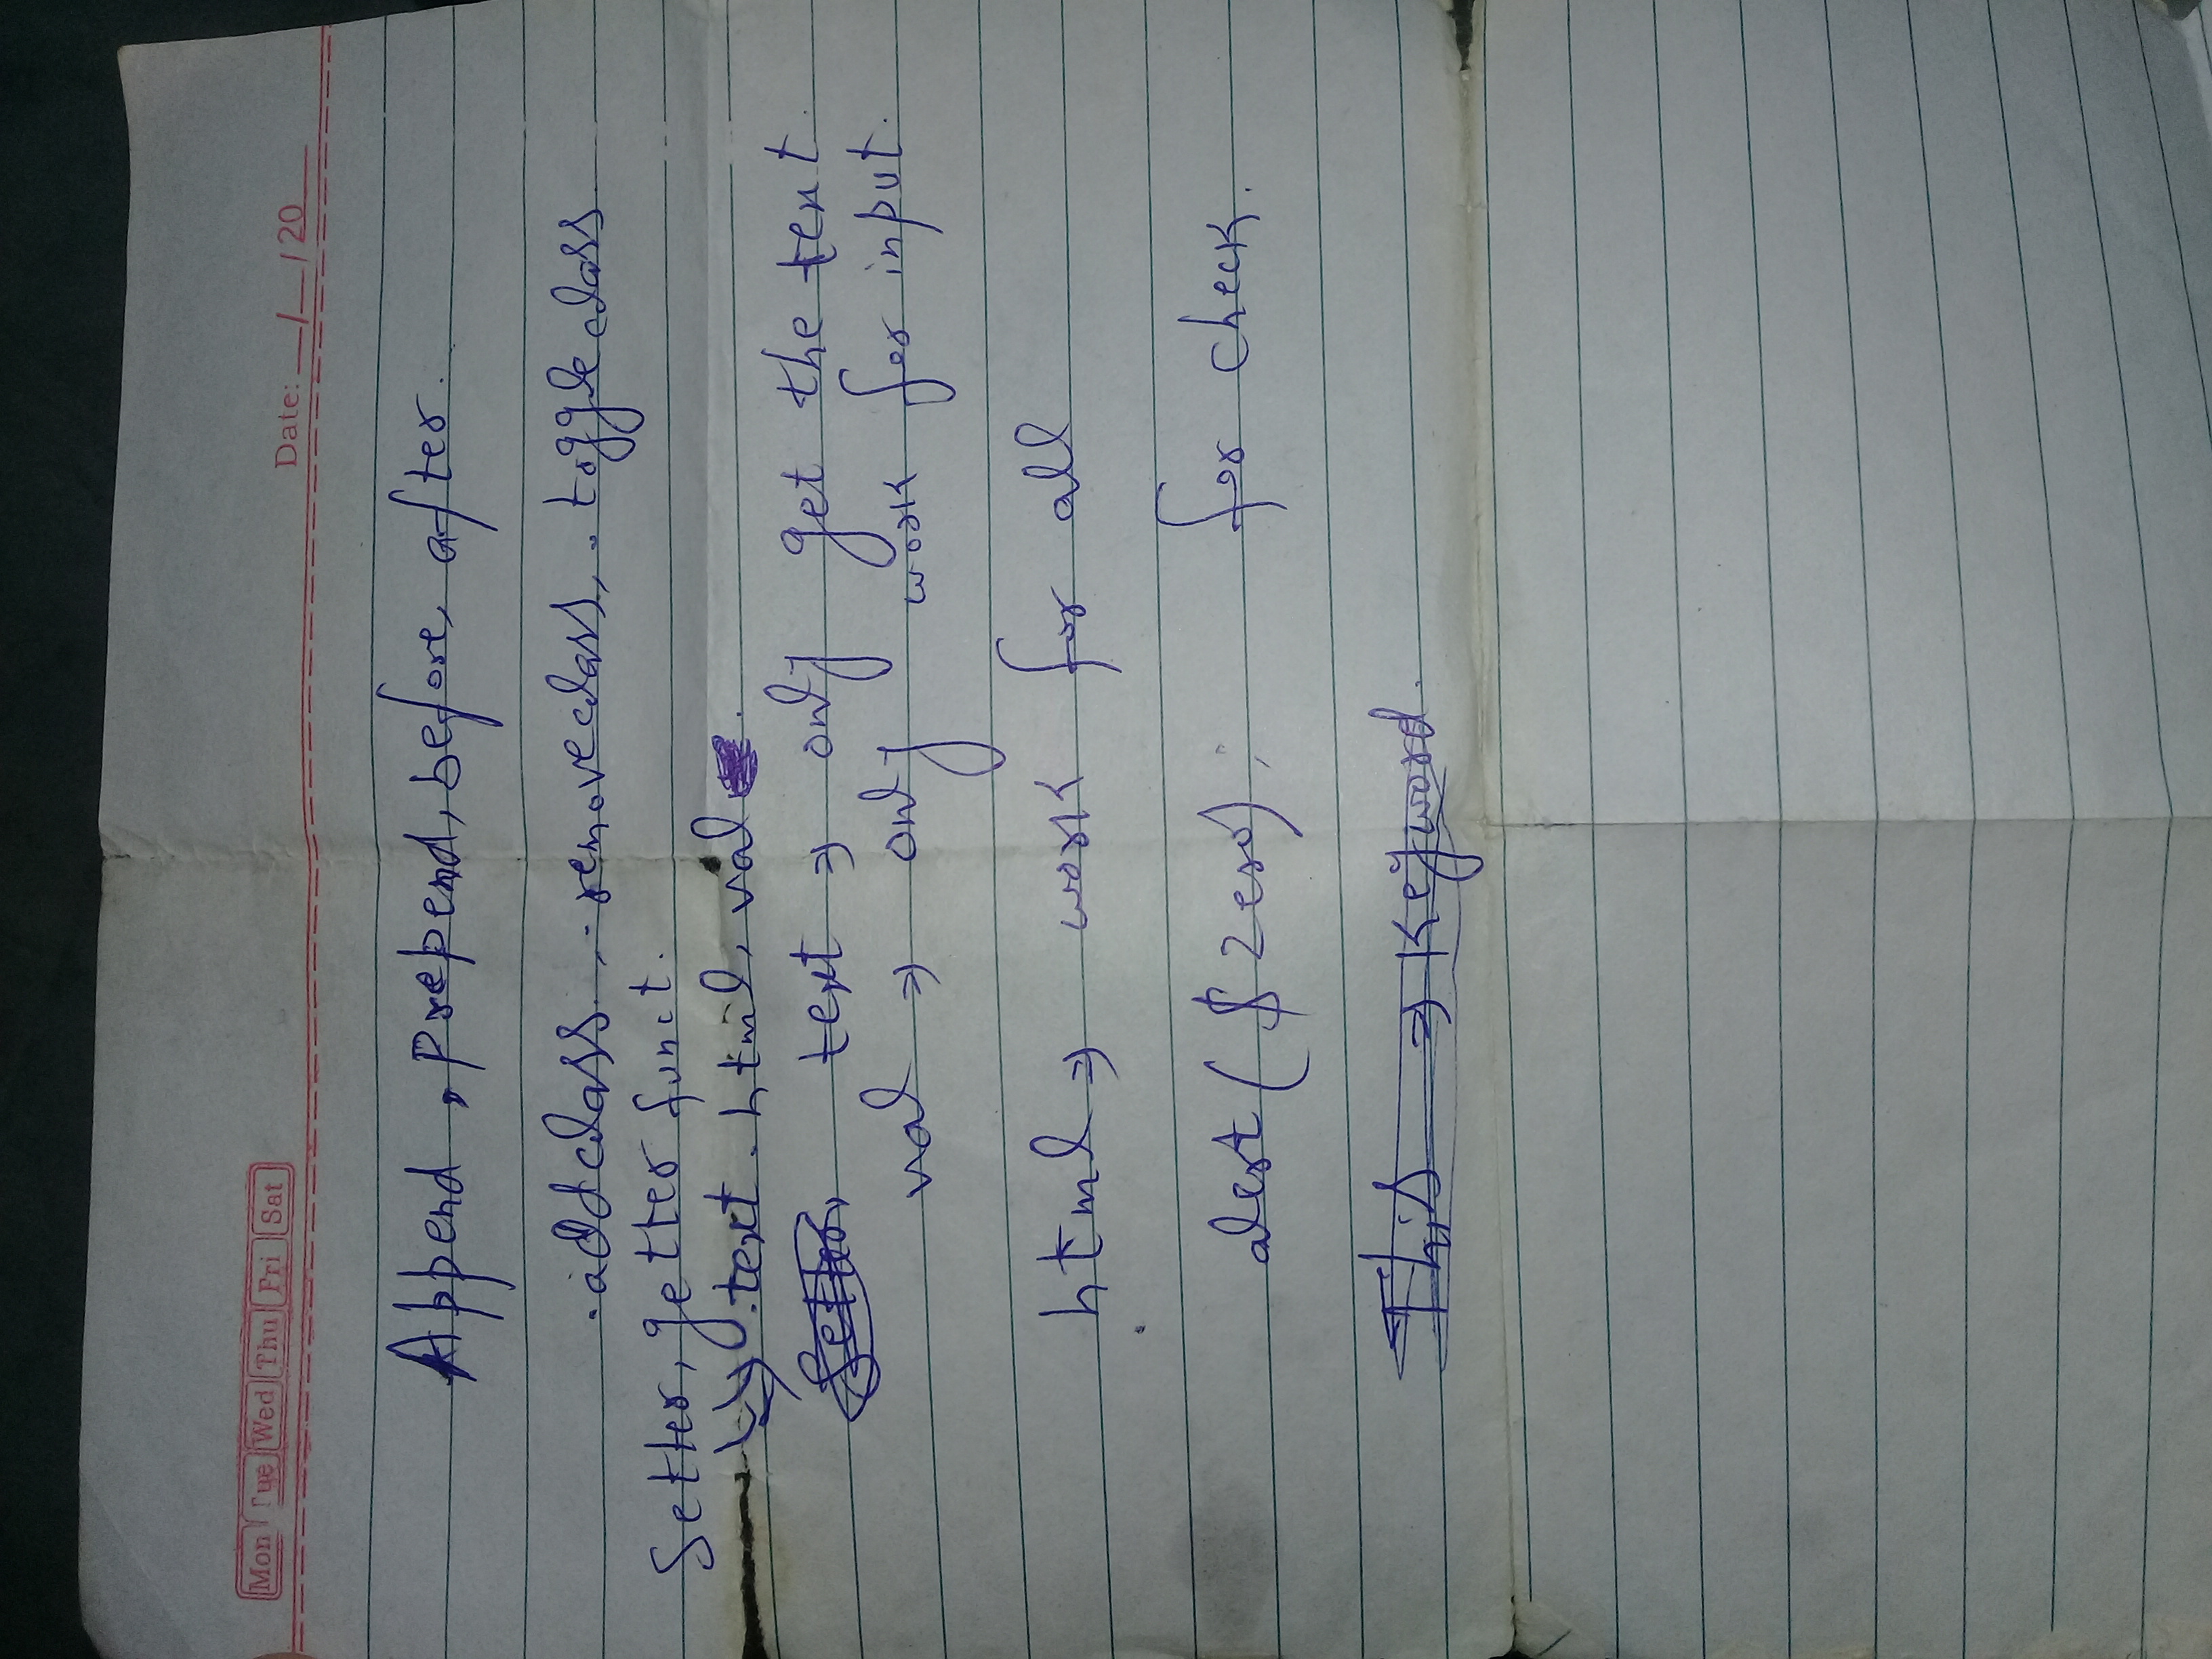 Mon Tue Wed Thu Fri Sat
Date: __/__/20___
Append, prepend, before, after.
.addclass, .removeclass, .toggleclass
Setter, getter funct.
.text .html, val
Setter, text ⇒ only get the text.
val ⇒ only work for input.
html ⇒ work for all
alert($zero); for check.
This ⇒ Keyword.